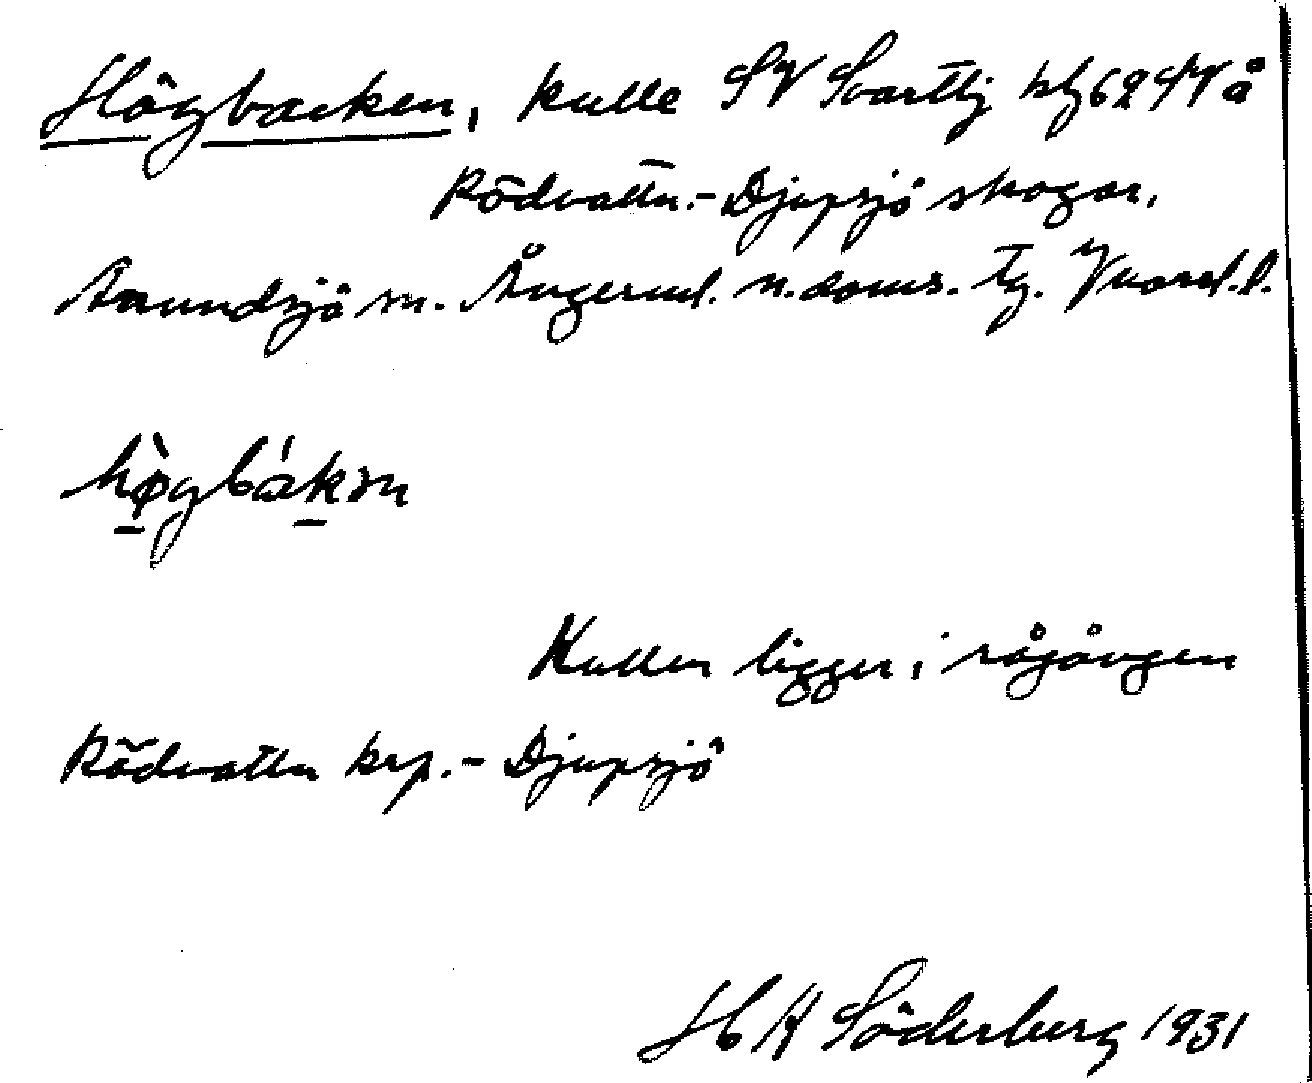 Högbacken, kulle SV Svarttj kbl 62 SV å
Rödvattn.- Djupsjö skogar,
Anundsjö sn. Ångerml. n. doms. tg. Vnorrl. l.
hø̀gbákən
Kullen ligger i rågången
Rödvattn krp.- Djupsjö
H A Söderberg 1931